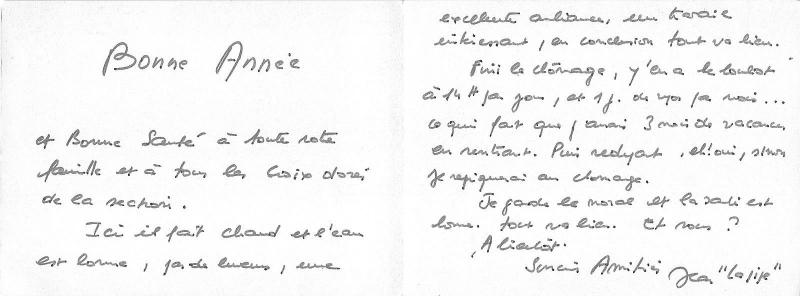 Bonne Année
et Bonne Santé à toute votre
famille et à tous les Croix dorés
de la section.
Ici il fait chaud et l'eau
est bonne, pas de une
excellente ambiance, un travail
intéressant, en conclusion tout va bien.
Fini le chômage, y'en a le boulot
à 14 H par jour, et 1 j. de repos par mois...
ce qui fait que j'aurai 3 mois de vacances
en rentrant. Puis , eh! oui, sinon
je repiquerai au chômage.
Je garde le moral et la santé est
bonne. tout va bien. Et vous ?
A bientôt.
Sincères Amitiés Jean